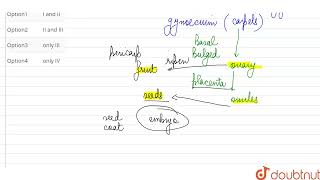 Option1 I and II
Option2 II and III
Option3 only III
Option4 only IV
gynoecium (carpels)
Basal
bulged
pericarp
ripen
fruit
ovary
placenta
seeds
ovules
seed
coat
embryo
doubtnut